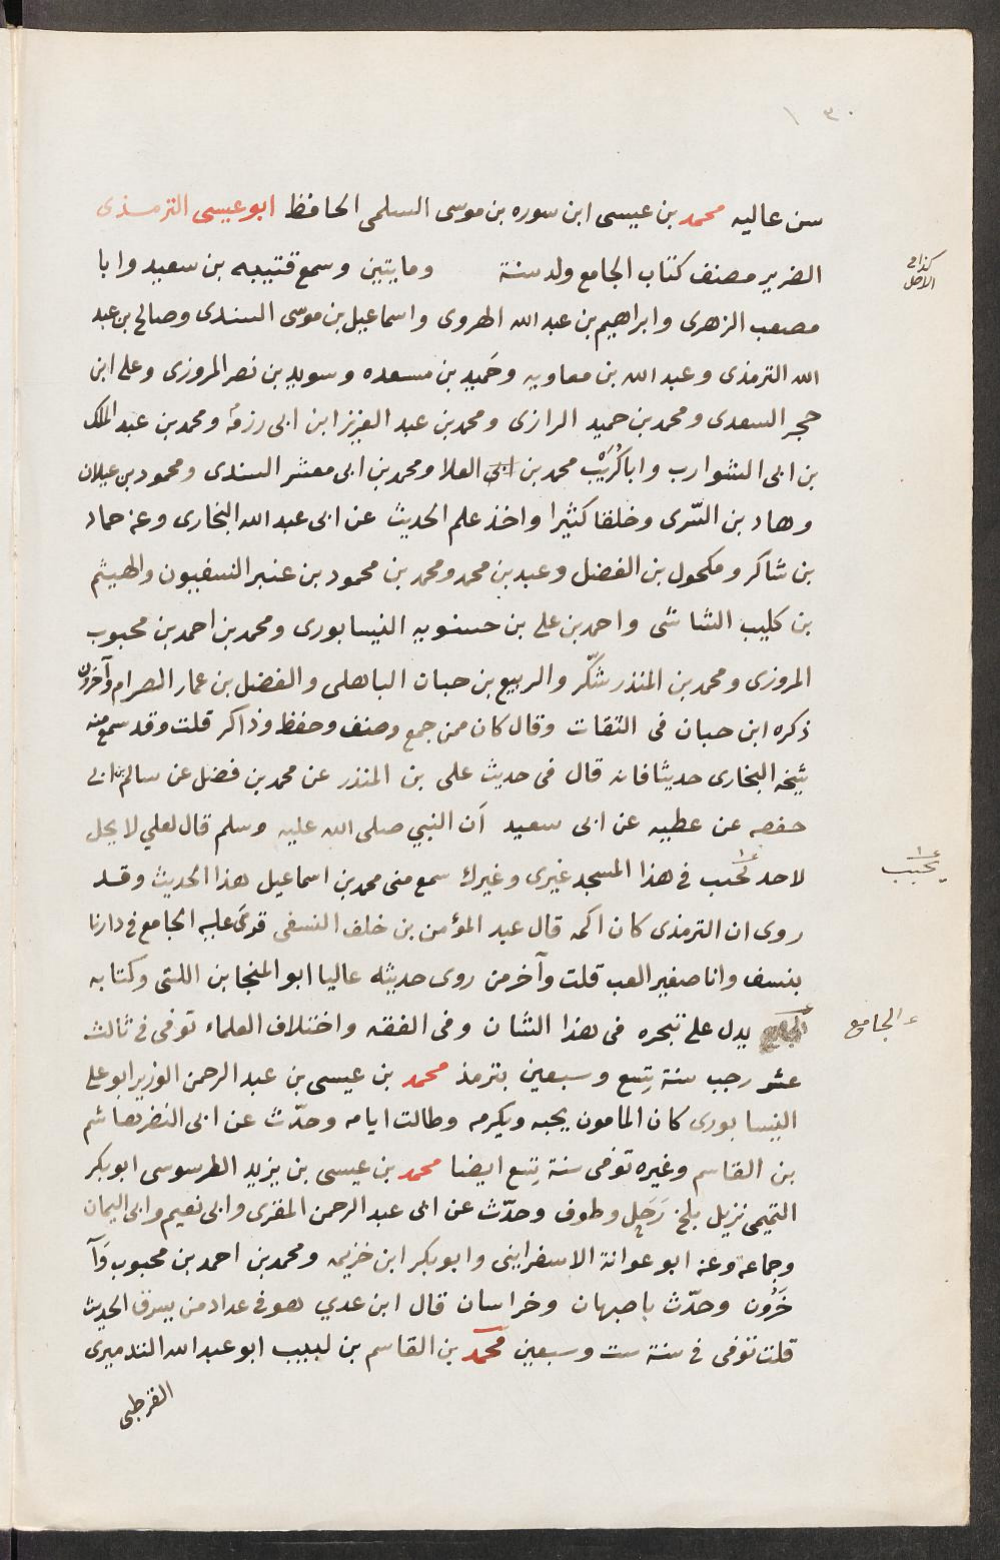 ١٣٠
سن عاليه محمد بن عيسى ابن سوره بن موسى السلمى الحافظ ابو عيسى الترمذى
الضرير مصنف كتاب الجامع ولد سنة ومايتين وسمع قتيبه بن سعيد وابا
كذا فى الاصل
مصعب الزهرى وابراهيم بن عبد الله الهروى واسماعيل بن موسى السندى وصالح بن عبد
الله الترمذى وعبد الله بن معاويه وحَميد بن مسعده وسويد بن نصر المروزى وعلى ابن
حجر السعدى ومحمد بن حميد الرازى ومحمد بن عبد العزيز ابن ابى رزمة ومحمد بن عبد الملك
بن ابى الشوارب وابا كُرَيْب محمد بن العلا ومحمد بن ابى معشر السندى ومحمود بن غيلان
وهاد بن السّرى وخلقا كثيرا واخذ علم الحديث عن ابى عبد الله البخارى وعنه حماد
بن شاكر ومكحول بن الفضل وعبد بن محمد ومحمد بن محمود بن عنبر النسفيون والهيثم
بن كليب الشاشى واحمد بن على بن حسنويه النيسابورى ومحمد بن احمد بن محبوب
المروزى ومحمد بن المنذر شكّر والربيع بن حبان الباهلى والفضل بن عمار الصرام وآخرون
ذكره ابن حبان فى الثقات وقال كان ممن جمع وصنف وحفظ وذاكر قلت وقد سمع منه
شيخه البخارى حديثا فانه قال فى حديث على بن المنذر عن محمد بن فضل عن سالم بن ابى
حفصه عن عطيه عن ابى سعيد اَن النبي صلى الله عليه وسلم قال لعلي لا يحل
لاحد يجنب فى هذا المسجد غيرى وغيرك سمع منى محمد بن اسماعيل هذا الحديث وقد
يجنب
روى ان الترمذى كان اكمه قال عبد المؤمن بن خلف النسفى قرئ عليه الجامع فى دارنا
بنسف وانا صغير العب قلت وآخر من روى حديثه عاليا ابو المنجا بن اللتى وكتابه
يدل على تبحره فى هذا الشان وفى الفقه واختلاف العلماء توفى فى ثالث
الجامع
عشر رجب سنة تِسع وسبعين بترمذ محمد بن عيسى بن عبد الرحمن الوزير ابو على
النيسابورى كان المامون يحبه ويكرمه وطالت ايامه وحدّث عن ابى النضر هاشم
بن القاسم وغيره توفى سنة تِسع ايضا محمد بن عيسى بن يزيد الطرسوسى ابو بكر
التميمى نزيل بلخ رَحَل وطوف وحدّث عن ابى عبد الرحمن المقرى وابى نعيم وابى اليمان
وجماعة وعنه ابو عوانة الاسفراينى وابو بكر ابن خزيمه ومحمد بن احمد بن محبوب وَآ
خَرُون وحدّث باصبهان وخراسان قال ابن عدي هو فى عداد من يسرق الحديث
قلت توفى فى سنة ست وسبعين محمد بن القاسم بن لبيب ابو عبد الله التدميرى
القرطبى